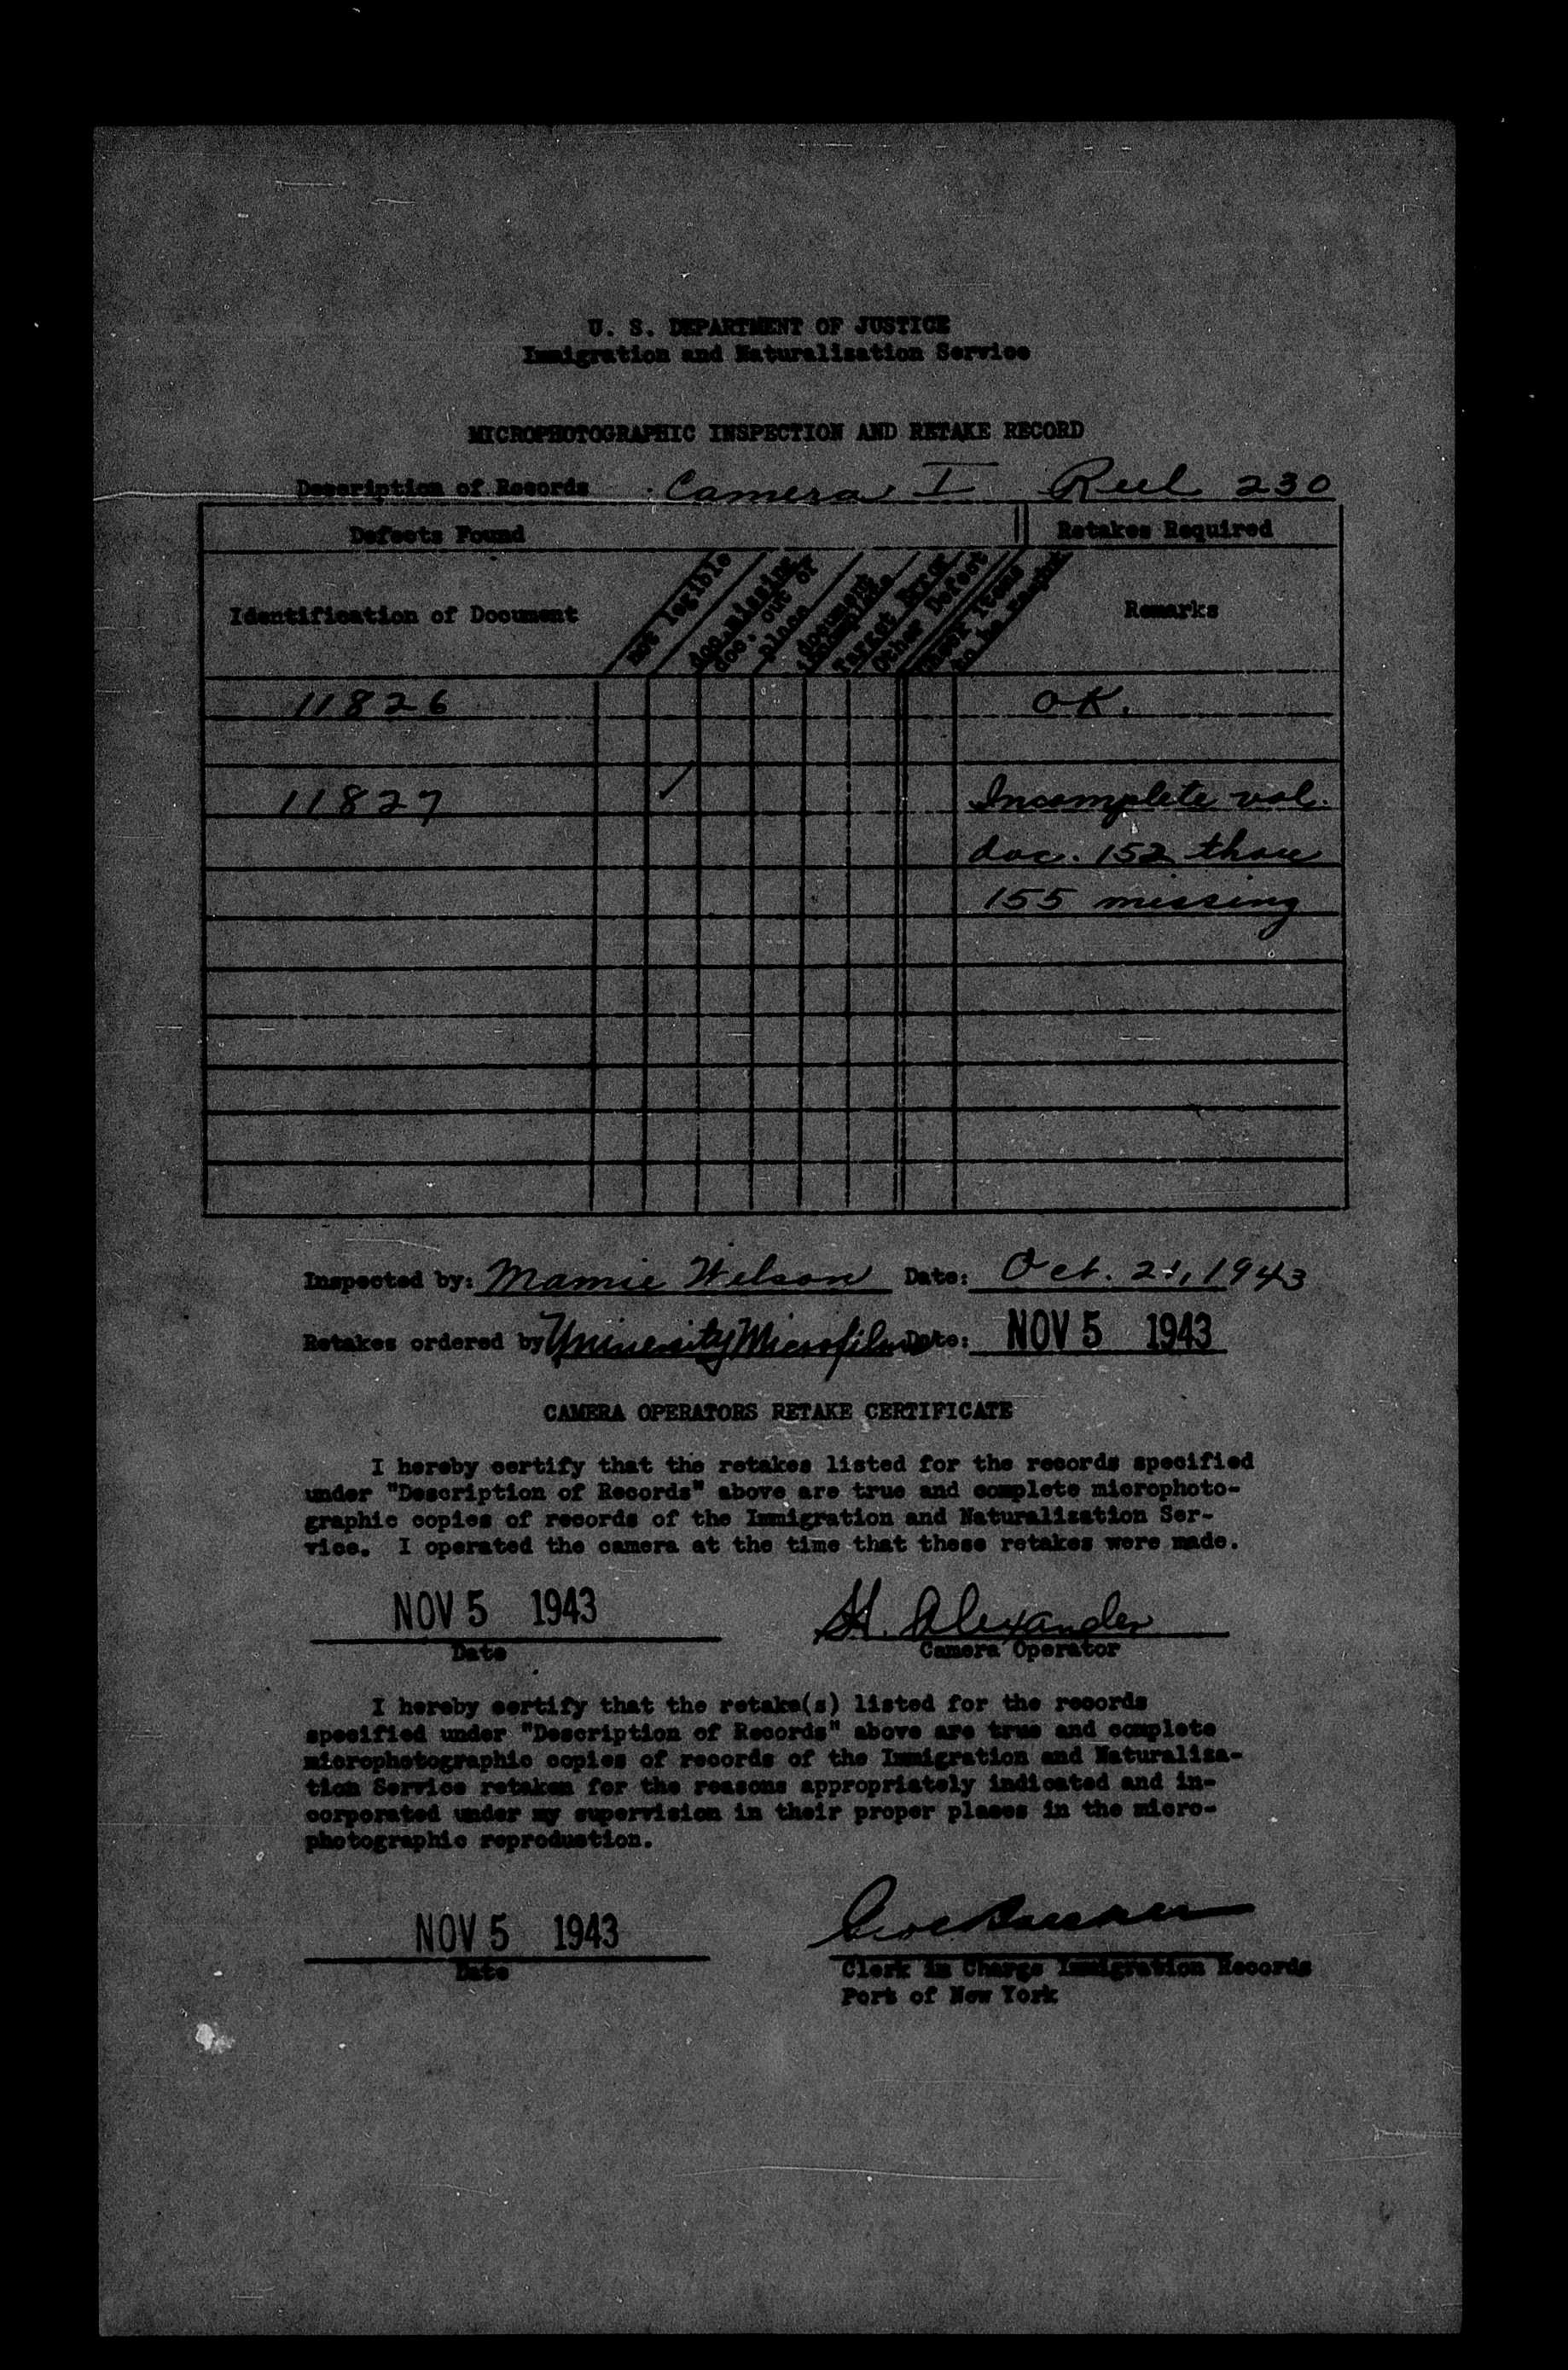 U. S. DEPARTMENT OF JUSTICE
Immigration and Naturalization Service
MICROPHOTOGRAPHIC INSPECTION AND RETAKE RECORD
Description of Records Camera I Reel 230
Defects Found Retakes Required
Identification of Document not legible doc. missing doc. out of place document incomplete Target Error Other Defect Check items to be Remarks
11826 OK.
11827 ✓ Incomplete vol.
doc. 152 thru
155 missing
Inspected by: Mamie Wilson Date: Oct. 21, 1943
Retakes ordered by University Microfilms Date: NOV 5 1943
CAMERA OPERATORS RETAKE CERTIFICATE
I hereby certify that the retakes listed for the records specified
under "Description of Records" above are true and complete microphoto-
graphic copies of records of the Immigration and Naturalization Ser-
vice. I operated the camera at the time that these retakes were made.
NOV 5 1943 H. Alexander
Date Camera Operator
I hereby certify that the retake(s) listed for the records
specified under "Description of Records" above are true and complete
microphotographic copies of records of the Immigration and Naturaliza-
tion Service retaken for the reasons appropriately indicated and in-
corporated under my supervision in their proper places in the micro-
photographic reproduction.
NOV 5 1943
Date Clerk in Charge Immigration Records
Port of New York